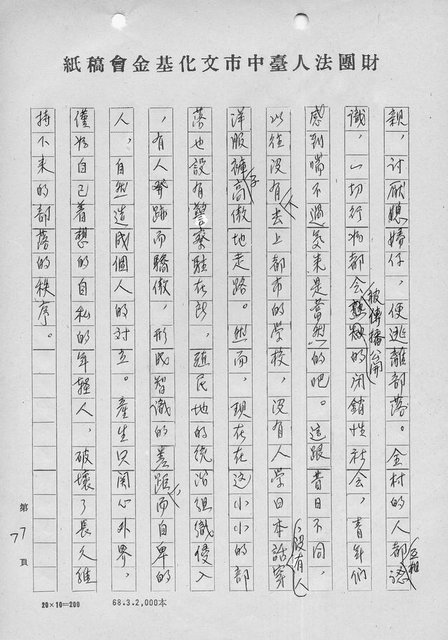 財團法人臺中市文化基金會稿紙
親，討厭媳婦仔，便逃離部落。全村的人都互相認
識，一切行為都會被傳播公開的閉鎖性社會，青年們
感到喘不過氣來是當然的吧。這跟昔日不同，
以往沒有去上都市的學校，沒有人學日本話，沒有人穿
洋服褲子高傲地走路。然而，現在在這小小的部
落也設有警察駐在所，殖民地的統治組織侵入
，有人發跡而驕傲，形成智識的差距，而自卑的
人，自然造成個人的對立。產生只關心外界，
僅為自己着想的自私的年輕人，破壞了長久維
持下來的部落的秩序。
第77頁
20×10=200
68.3.2,000本